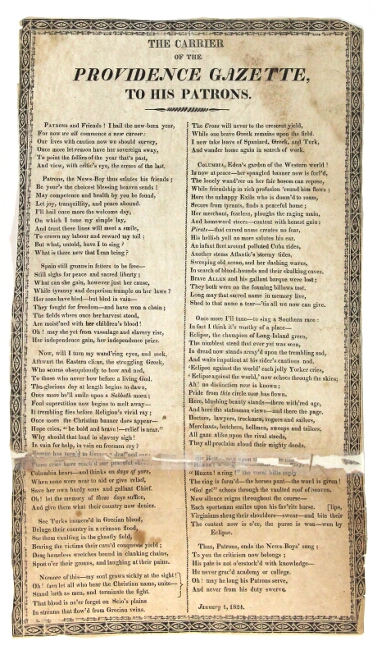 THE CARRIER
OF THE
PROVIDENCE GAZETTE,
TO HIS PATRONS.
PATRONS and Friends! I hail the new-born year,
For now we all commence a new career:
Our lives with caution now we should survey,
Once more let reason have her sovereign sway,
To point the follies of the year that's past,
And view, with critic's eye, the errors of the last.
Patrons, the News-Boy thus salutes his friends;
Be your's the choicest blessing heaven sends!
May competence and health by you be found,
Let joy, tranquillity, and peace abound.
I'll hail once more the welcome day,
On which I tune my simple lay,
And trust these lines will meet a smile,
To crown my labour and reward my toil;
But what, untold, have I to sing?
What is there new that I can bring?
Spain still groans in fetters to be free—
Still sighs for peace and sacred liberty;
What can she gain, however just her cause,
While tyranny and despotism trample on her laws?
Her sons have bled—but bled in vain—
They fought for freedom—and have won a chain;
The fields where once her harvest stood,
Are moist'ned with her children's blood!
Oh! may she yet from vassalage and slavery rise,
Her independence gain, her independence prize.
Now, will I turn my wand'ring eyes, and seek,
Athwart the Eastern clime, the struggling Greek,
Who scorns obsequiously to bow and nod,
To those who never bow before a living God.
The glorious day at length begins to dawn,
Once more he'll smile upon a Sabbath morn;
Foul superstition now begins to melt away—
It trembling flies before Religion's vivid ray;
Once more the Christian banner does appear—
Hope cries, "be bold and brave!—relief is near."
Why should that land in slavery sigh!
In vain for help, in vain for freemen cry?
Columbia hears—and thinks on days of yore,
When none were near to aid or give relief,
Save her own hardy sons and gallant Chief.
Oh! let the memory of those days suffice,
And give them what their country now denies.
See Turks immers'd in Grecian blood,
Deluge their country in a crimson flood,
See them exulting in the ghastly field,
Bearing the victims their curs'd conquests yield;
Drag homeless wretches bound in clanking chains,
Spot o'er their groans, and laughing at their pains.
No more of this—my soul grows sickly at the sight!
Oh! then let all who bear the Christian name, unite—
Stand forth as men, and terminate the fight.
That blood is ne'er forgot on Scio's plains
In streams that flow'd from Grecian veins.
The Cross will never to the crescent yield,
While one brave Greek remains upon the field.
I now take leave of Spaniard, Greek, and Turk,
And wander home again in search of work.
COLUMBIA, Eden's garden of the Western world!
In now at peace—her spangled banner now is furl'd,
The lonely wand'rer on her fair bosom can repose,
While friendship in rich profusion 'round him flows;
Here the unhappy Exile who is doom'd to roam,
Secure from tyrants, finds a peaceful home;
Her merchant, fearless, ploughs the raging main,
And homeward steers—content with honest gain;
Pirate—that cursed name creates no fear,
His hellish yell no more salutes his ear.
As is that fleet around polluted Cuba rides,
Another stems Atlantic's stormy tides,
Sweeping old ocean, and her dashing waves,
In search of blood-hounds and their skulking caves.
Brave ALLEN and his gallant barque were lost;
They both were on the foaming billows tost.
Long may that sacred name in memory live,
Shed to that name a tear—'tis all we now can give.
Once more I'll tune—to sing a Southern race:
In fact I think it's worthy of a place—
Eclipse, the champion of Long-Island green,
The nimblest steed that ever yet was seen,
In dread now stands array'd upon the trembling sod,
And waits impatient at his rider's cautious nod.
'Eclipse against the world' each jolly Yorker cries,
'Eclipse against the world,' now echoes through the skies;
Ah! no distinction now is known;
Pride from this circle now has flown.
Here, blushing beauty stands—there withered age,
And here the statesman views—and there the page.
Doctors, lawyers, truckmen, rogues and sailors,
Merchants, butchers, bellmen, wenches and tailors,
All gaze alike upon the rival steeds,
They all proclaim aloud their mighty deeds.
The ring is form'd—the horses pant—the word is given!
'Go! go!' echoes through the vaulted roof of heaven.
Now silence reigns throughout the course—
Each sportsman smiles upon his fav'rite horse. [lips,
Virginians shrug their shoulders—swear—and bite their
The contest now is o'er, the purse is won—won by
Eclipse.
Thus, Patrons, ends the News-Boys' song;
To you the criticism now belongs;
His pate is not o'erstock'd with knowledge—
He never grac'd academy or college.
Oh! may he long his Patrons serve,
And never from his duty swerve.
January 1, 1824.